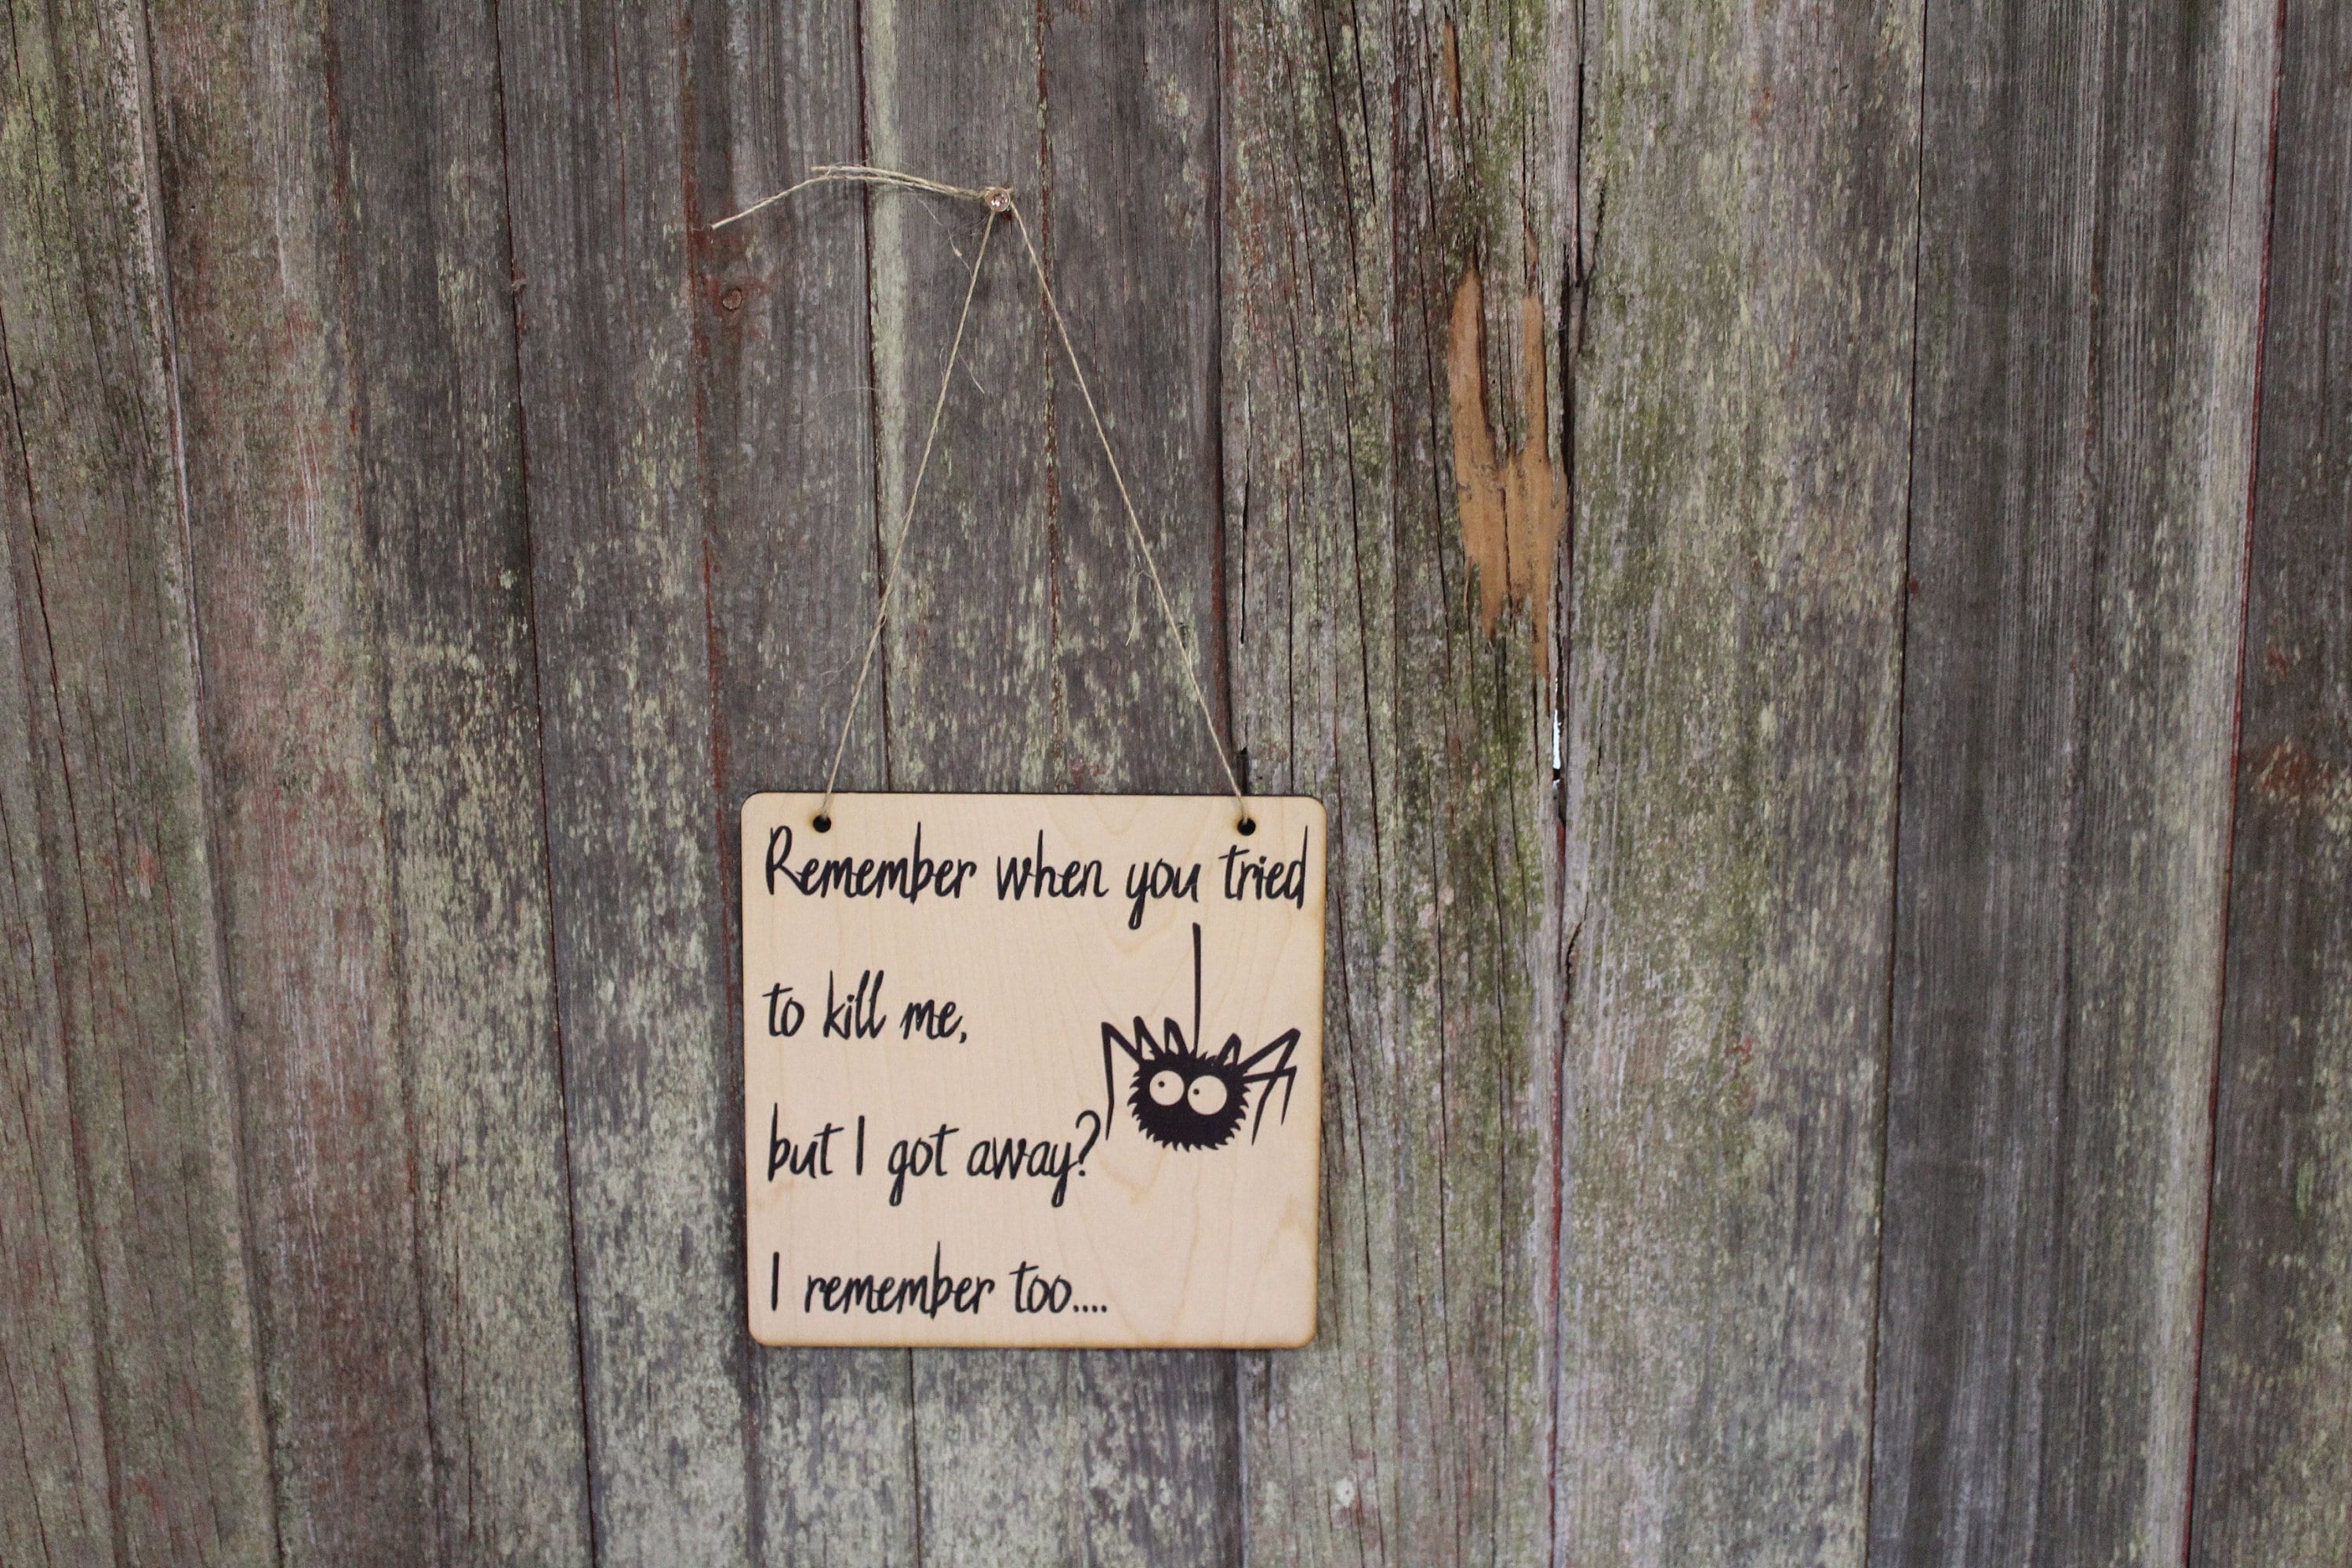 Remember when you tried
to kill me,
but I got away?
I remember too....